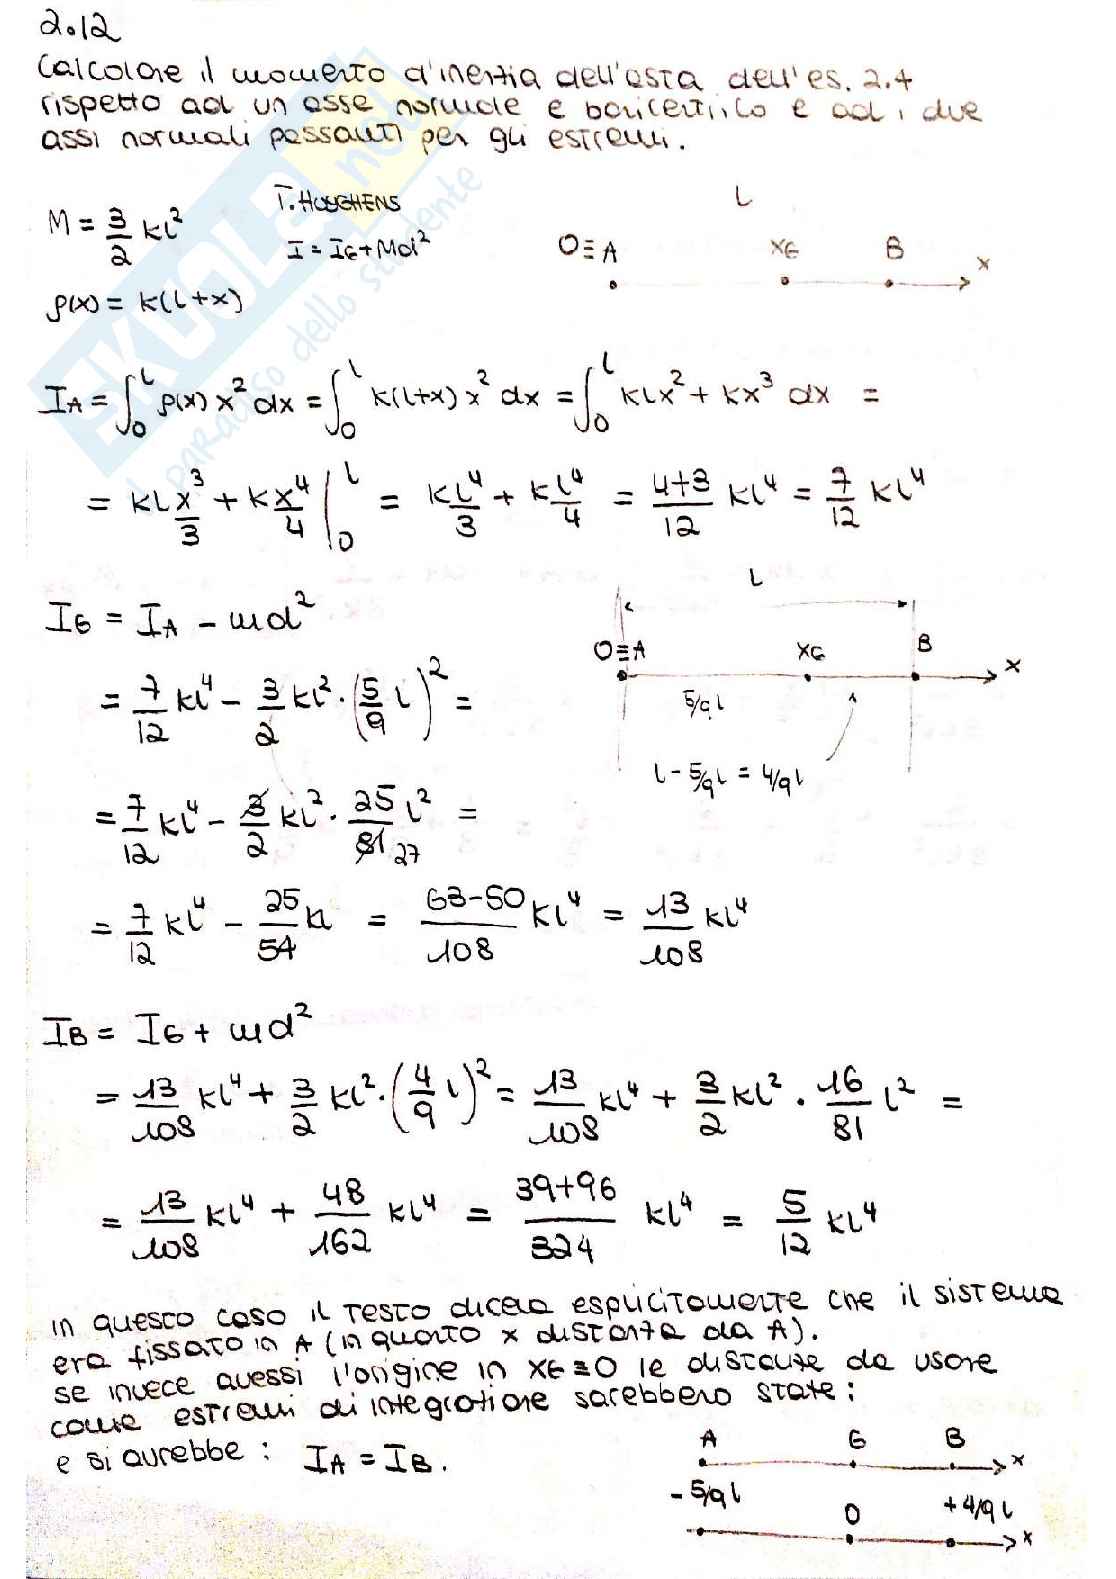 2.12
Calcolare il momento d'inertia dell'asta dell'es. 2.4
rispetto ad un asse normale e baricentrico e ad i due
assi normali passanti per gli estremi.
M = 3/2 kl²
T. HUYGHENS
I = IG + Md²
ρ(x) = k(l+x)
L
O≡A XG B x
IA = ∫₀ˡ ρ(x) x² dx = ∫₀ˡ k(l+x) x² dx = ∫₀ˡ klx² + kx³ dx =
= kl x³/3 + k x⁴/4 |₀ˡ = kl⁴/3 + kl⁴/4 = (4+3)/12 kl⁴ = 7/12 kl⁴
IG = IA - md²
= 7/12 kl⁴ - 3/2 kl² · (5/9 l)² =
= 7/12 kl⁴ - 3/2 kl² · 25/81 l² =
27
= 7/12 kl⁴ - 25/54 kl = (63-50)/108 kl⁴ = 13/108 kl⁴
L
O≡A XG B x
5/9 l
l - 5/9 l = 4/9 l
IB = IG + md²
= 13/108 kl⁴ + 3/2 kl² · (4/9 l)² = 13/108 kl⁴ + 3/2 kl² · 16/81 l² =
= 13/108 kl⁴ + 48/162 kl⁴ = (39+96)/324 kl⁴ = 5/12 kl⁴
in questo caso il testo diceva esplicitamente che il sistema
era fissato in A (in quanto x distanza da A).
se invece avessi l'origine in XG≡O le distanze da usare
come estremi di integrazione sarebbero state:
e si avrebbe: IA = IB.
A G B x
-5/9 l O +4/9 l
x
SKUOLA.net
il paradiso dello studente